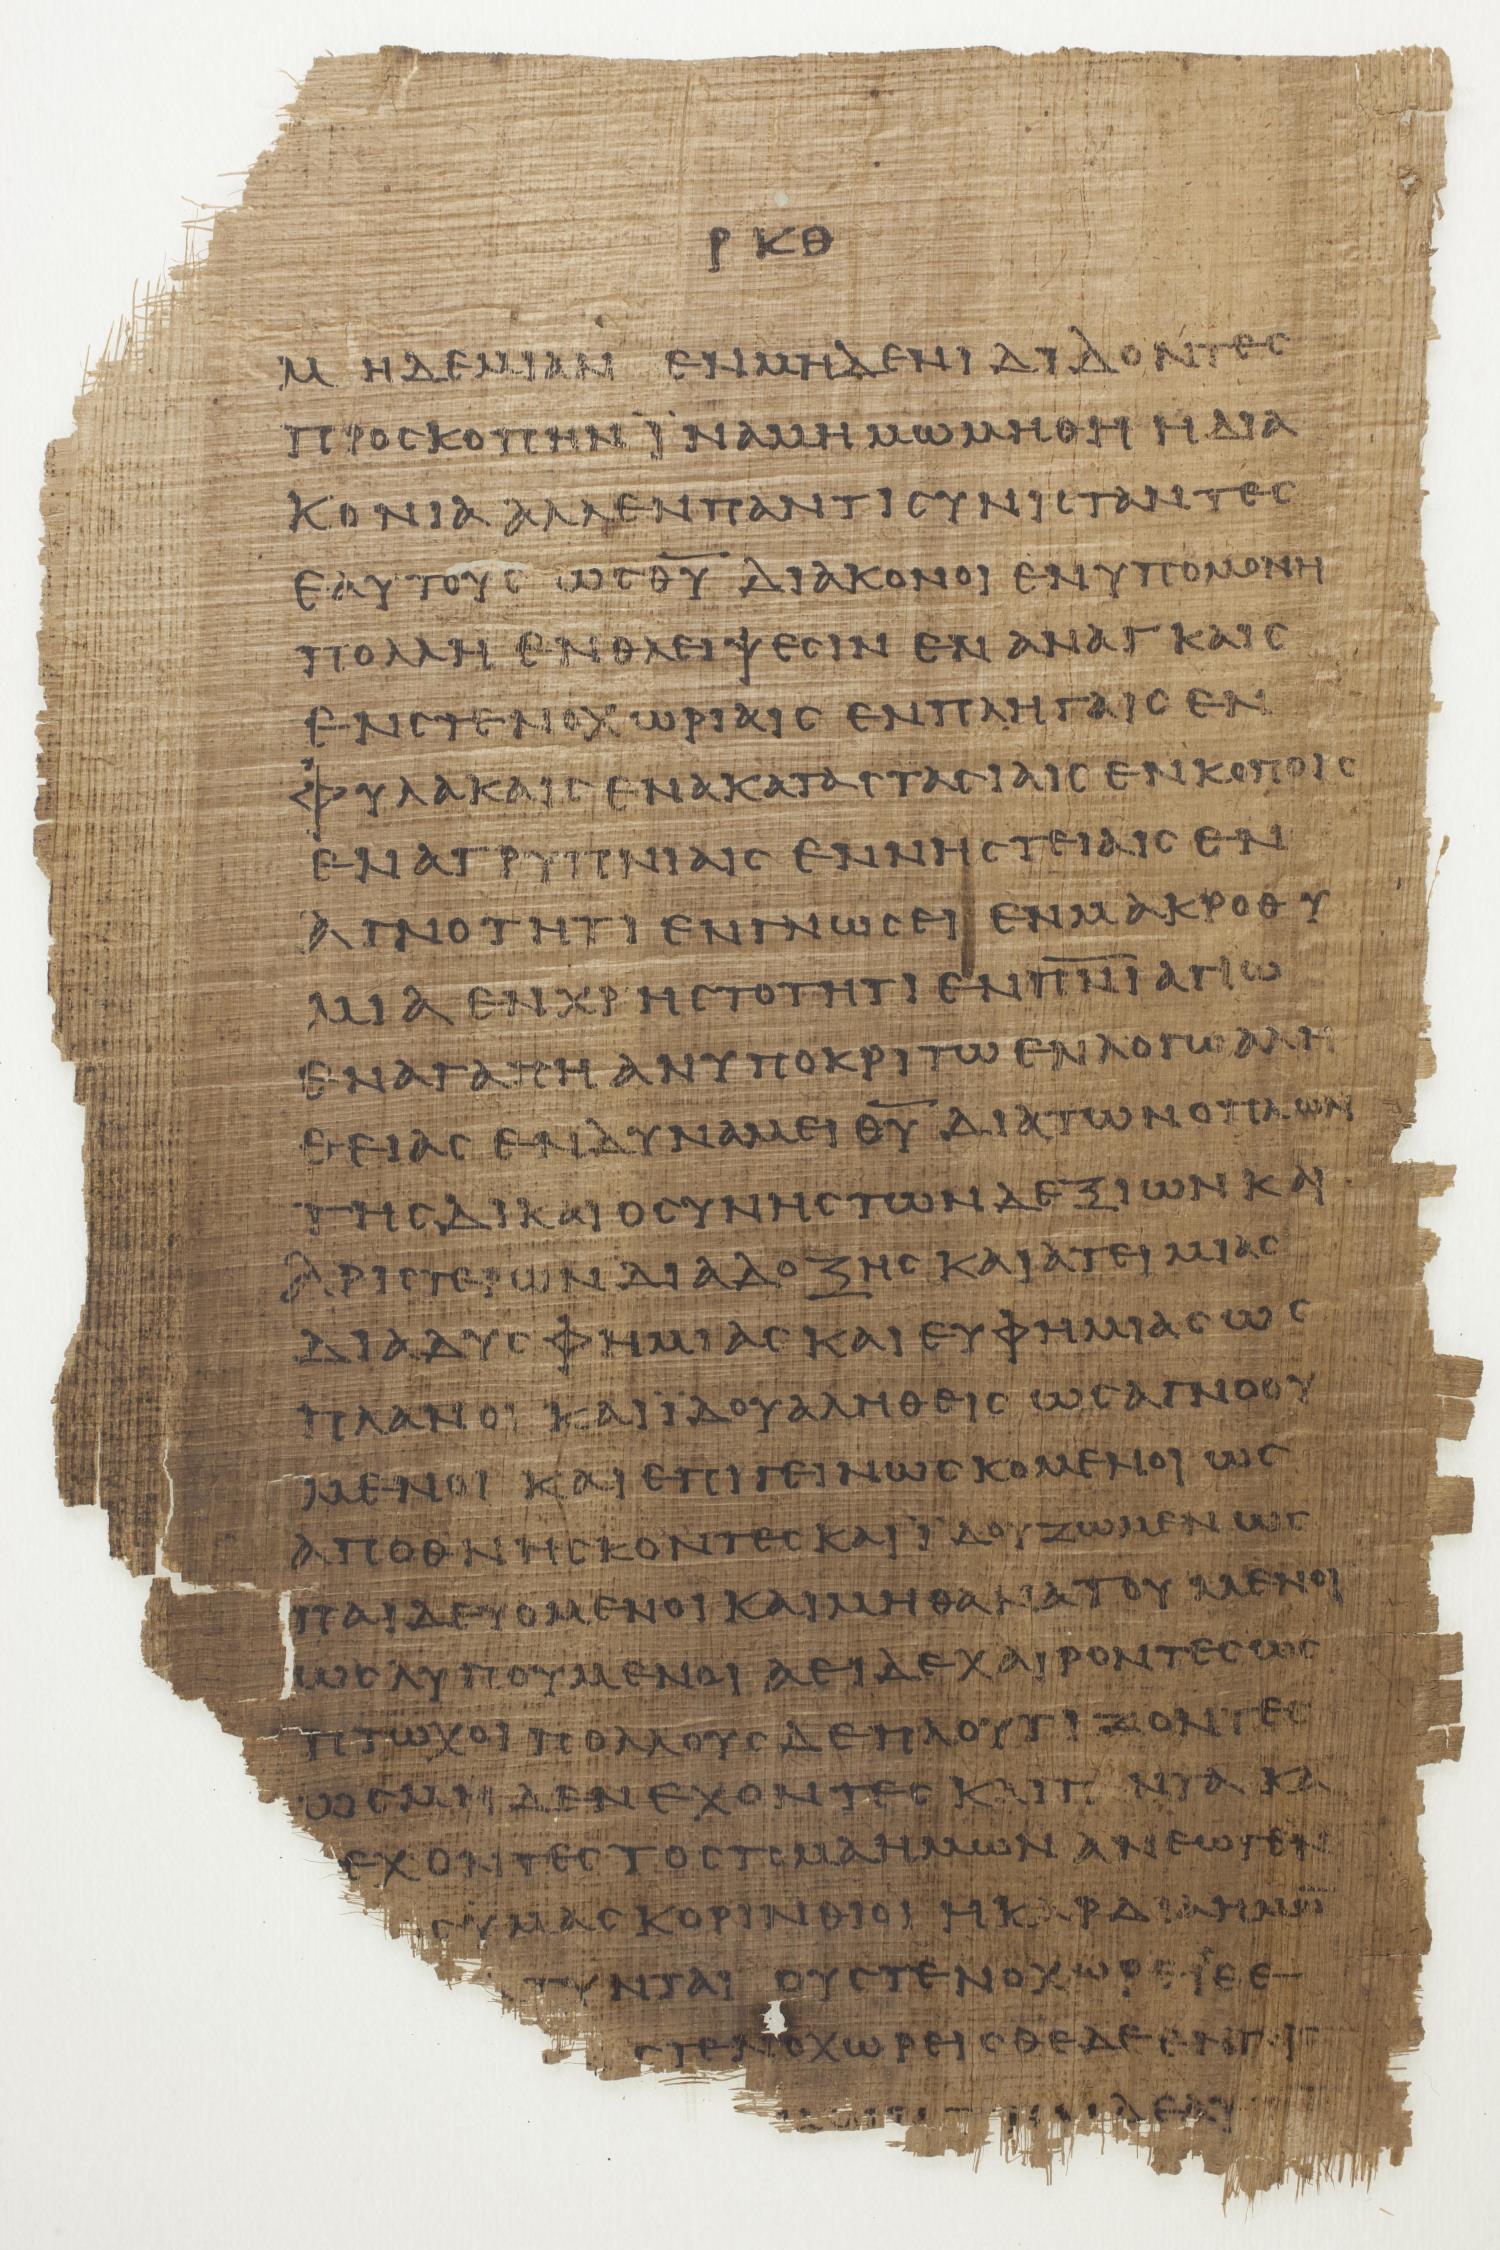 ΡΚΘ
ΜΗΔΕΜΙΑΝ ΕΝΜΗΔΕΝΙ ΔΙΔΟΝΤΕϹ
ΠΡΟϹΚΟΠΗΝ ΪΝΑΜΗΜΩΜΗΘΗ Η ΔΙΑ
ΚΟΝΙΑ ΑΛΛΕΝΠΑΝΤΙϹΥΝΙϹΤΑΝΤΕϹ
ΕΑΥΤΟΥϹ ΩϹΘ̅Υ̅ ΔΙΑΚΟΝΟΙ ΕΝΥΠΟΜΟΝΗ
ΠΟΛΛΗ ΕΝΘΛΕΙΨΕϹΙΝ ΕΝ ΑΝΑΓΚΑΙϹ
ΕΝϹΤΕΝΟΧΩΡΙΑΙϹ ΕΝΠΛΗΓΑΙϹ ΕΝ
ΦΥΛΑΚΑΙϹ ΕΝΑΚΑΤΑϹΤΑϹΙΑΙϹ ΕΝΚΟΠΟΙϹ
ΕΝΑΓΡΥΠΝΙΑΙϹ ΕΝΝΗϹΤΕΙΑΙϹ ΕΝ
ΑΓΝΟΤΗΤΙ ΕΝΓΝΩϹΕΙ ΕΝΜΑΚΡΟΘΥ
ΜΙΑ ΕΝΧΡΗϹΤΟΤΗΤΙ ΕΝΠ̅Ν̅Ι̅ ΑΓΙΩ
ΕΝΑΓΑΠΗ ΑΝΥΠΟΚΡΙΤΩ ΕΝΛΟΓΩ ΑΛΗ
ΘΕΙΑϹ ΕΝΔΥΝΑΜΕΙ Θ̅Υ̅ ΔΙΑΤΩΝΟΠΛΩΝ
ΤΗϹΔΙΚΑΙΟϹΥΝΗϹΤΩΝΔΕΞΙΩΝ ΚΑΙ
ΑΡΙϹΤΕΡΩΝ ΔΙΑΔΟΞΗϹ ΚΑΙΑΤΕΙΜΙΑϹ
ΔΙΑΔΥϹΦΗΜΙΑϹ ΚΑΙ ΕΥΦΗΜΙΑϹ ΩϹ
ΠΛΑΝΟΙ ΚΑΙΪΔΟΥΑΛΗΘΕΙϹ ΩϹΑΓΝΟΟΥ
ΜΕΝΟΙ ΚΑΙ ΕΠΙΓΕΙΝΩϹΚΟΜΕΝΟΙ ΩϹ
ΑΠΟΘΝΗϹΚΟΝΤΕϹ ΚΑΙΪΔΟΥΖΩΜΕΝ ΩϹ
ΠΑΙΔΕΥΟΜΕΝΟΙ ΚΑΙΜΗΘΑΝΑΤΟΥΜΕΝΟΙ
ΩϹΛΥΠΟΥΜΕΝΟΙ ΑΕΙΔΕΧΑΙΡΟΝΤΕϹ ΩϹ
ΠΤΩΧΟΙ ΠΟΛΛΟΥϹΔΕΠΛΟΥΤΙΖΟΝΤΕϹ
ΩϹΜΗΔΕΝΕΧΟΝΤΕϹ ΚΑΙΠ ΝΤΑ ΚΑ
ΕΧΟΝΤΕϹ ΤΟϹΤΟΜΑΗΜΩΝ ΑΝΕΩΓΕΝ
ϹΫΜΑϹΚΟΡΙΝΘΙΟΙ ΗΚΑΡΔΙΑΗΜΩ̅
ΤΥΝΤΑΙ ΟΥϹΤΕΝΟΧΩΡΕΙϹΘΕ
ϹΤΕΝΟΧΩΡΕΙϹΘΕΔΕ ΕΝ